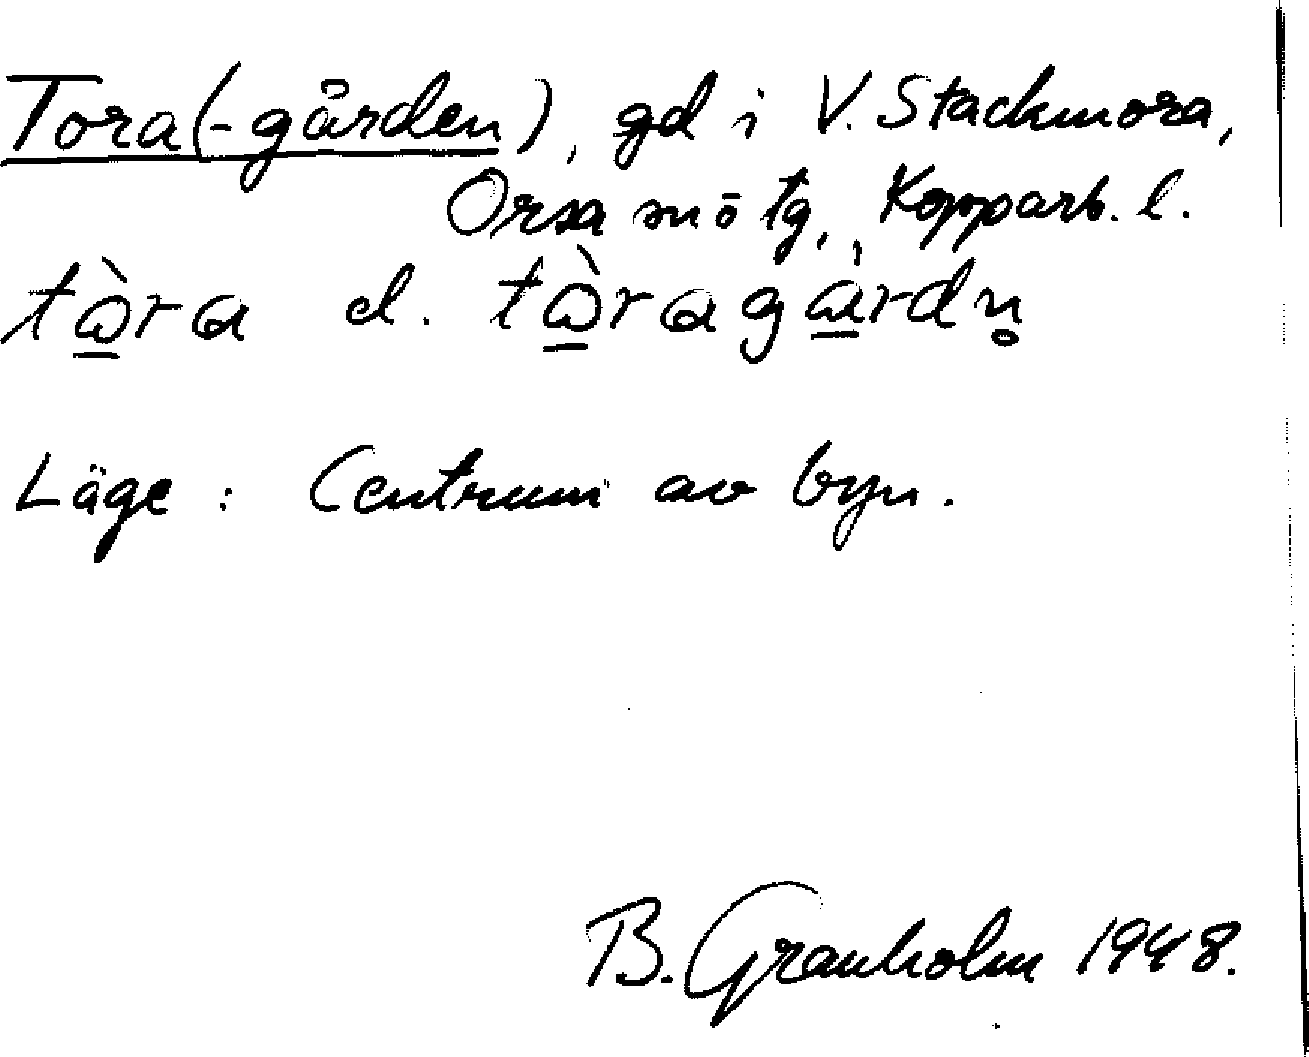 Tora(-gården), gd i V. Stackmora,
Orsa sn ö tg, Kopparb. l.
tὼ̱ra el. tὼ̱ragὰ̱rdn̥
Läge: Centrum av byn.
B. Granholm 1948.